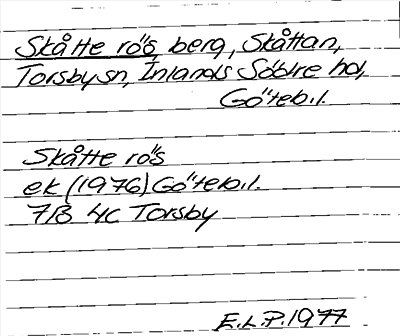 Skåtte rö's berg, Skåttan,
Torsby sn, Inlands Södre hd,
Göteb.l.
Skåtte rös
ek (1976) Göteb.l.
7B 4c Torsby
E.L.P. 1977